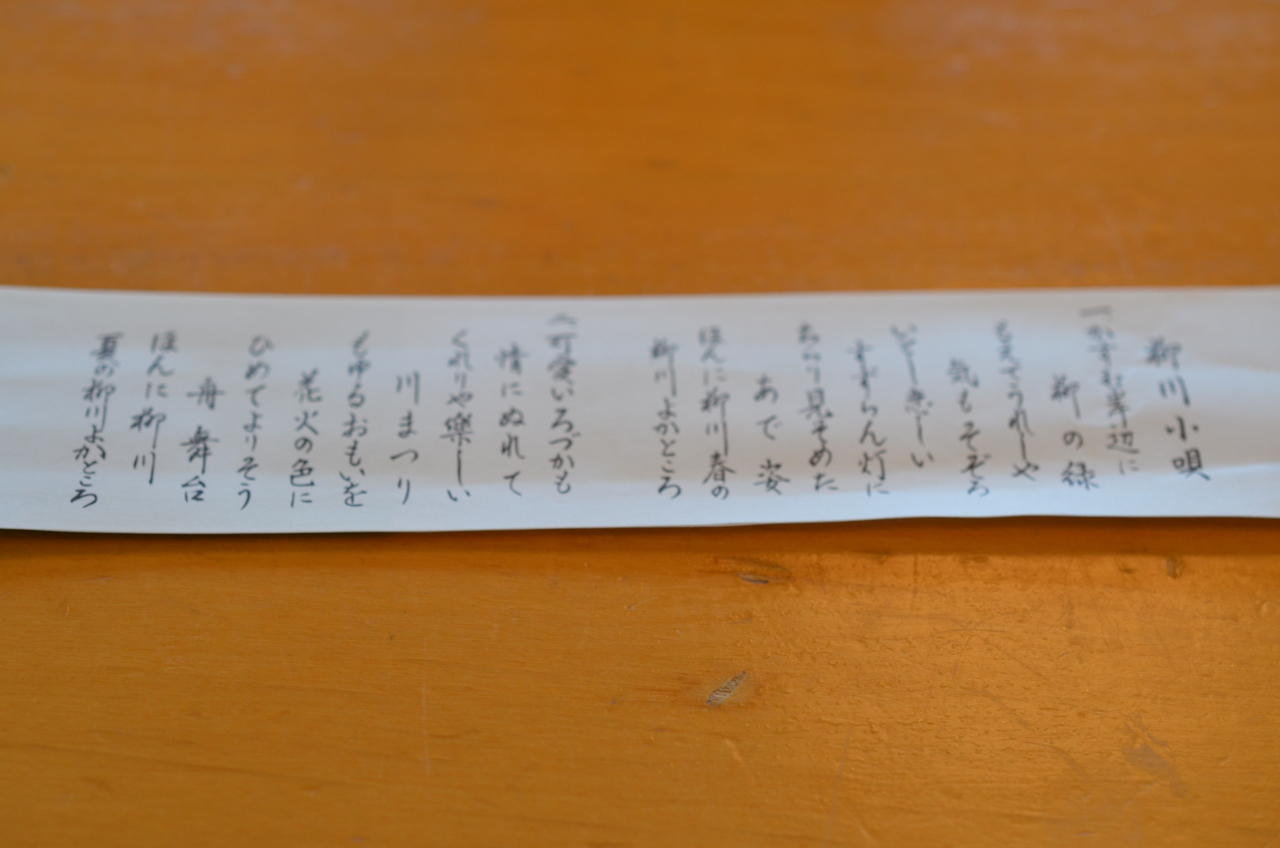 柳川小唄
一、かすむ岸辺に
柳の緑
もえてうれしや
気もそぞろ
いとし恋しい
すずらん灯に
ちらり見そめた
あで姿
ほんに柳川春の
柳川よかところ
二、可愛いろづかも
情にぬれて
くれりや楽しい
川まつり
もゆるおもいを
花火の色に
ひめてよりそう
舟舞台
ほんに柳川
夏の柳川よかところ